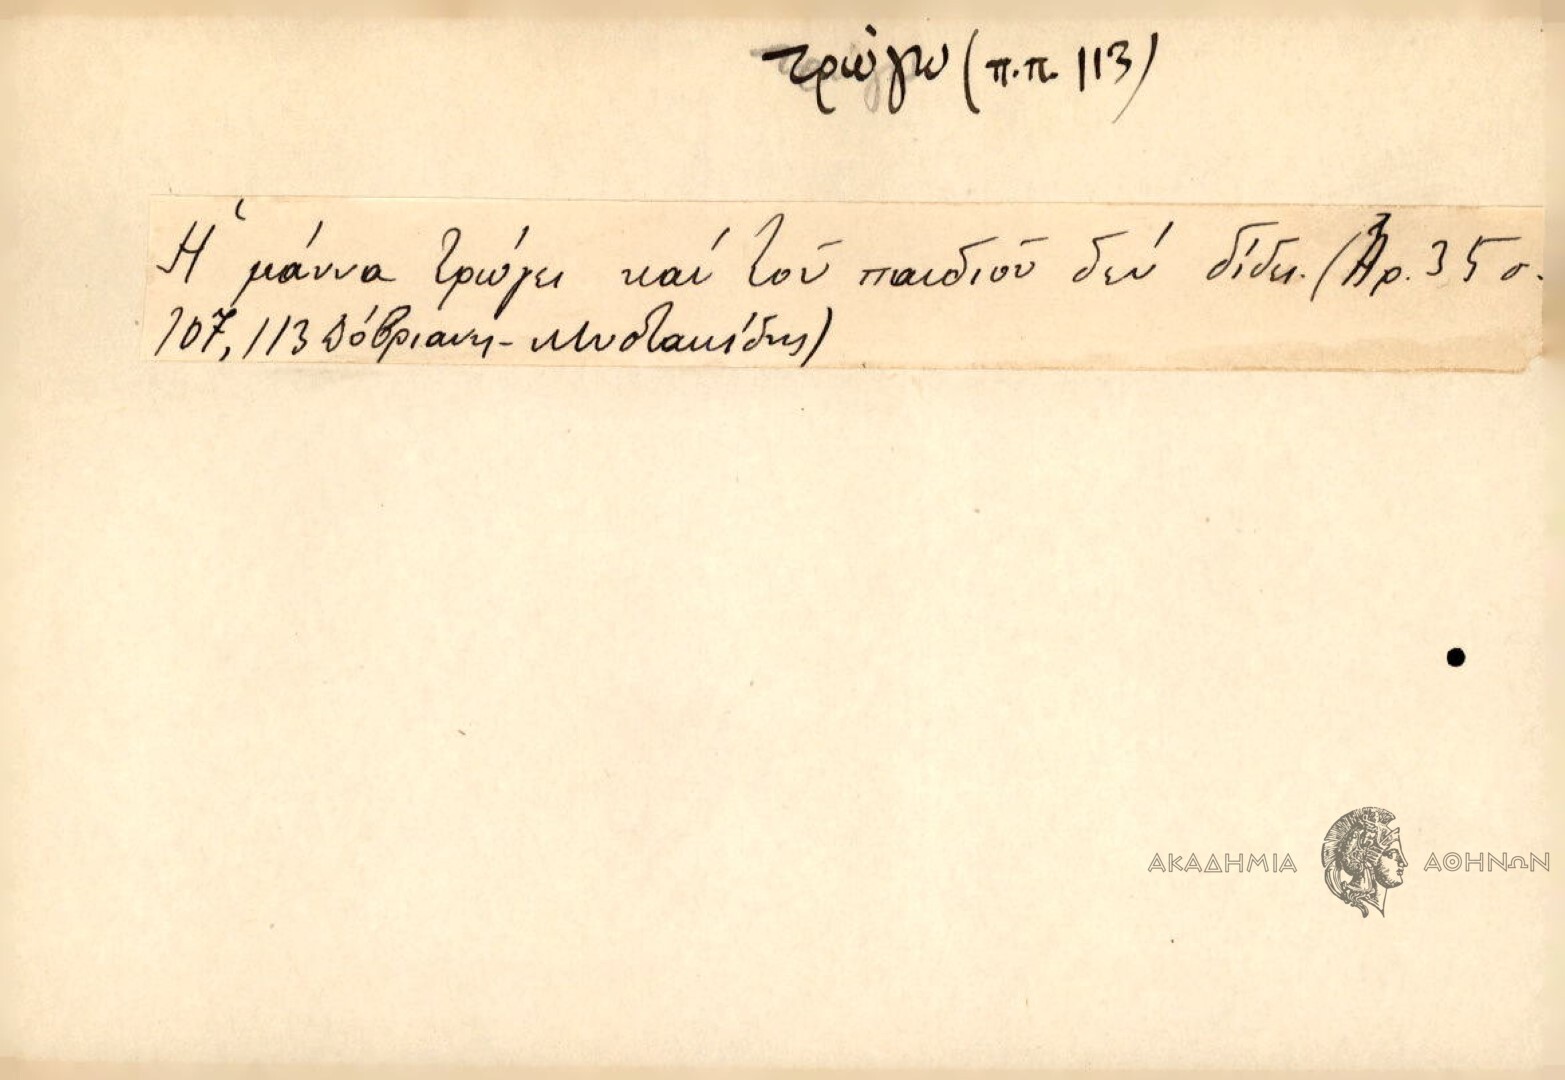 τρώγω (π.π. 113)
Ἡ μάννα τρώγει καί τοῦ παιδιοῦ δέν δίδει. (Ἀρ. 35 σ.
107, 113 Δόβριανη - Μυστακίδης)
ΑΚΑΔΗΜΙΑ ΑΘΗΝΩΝ